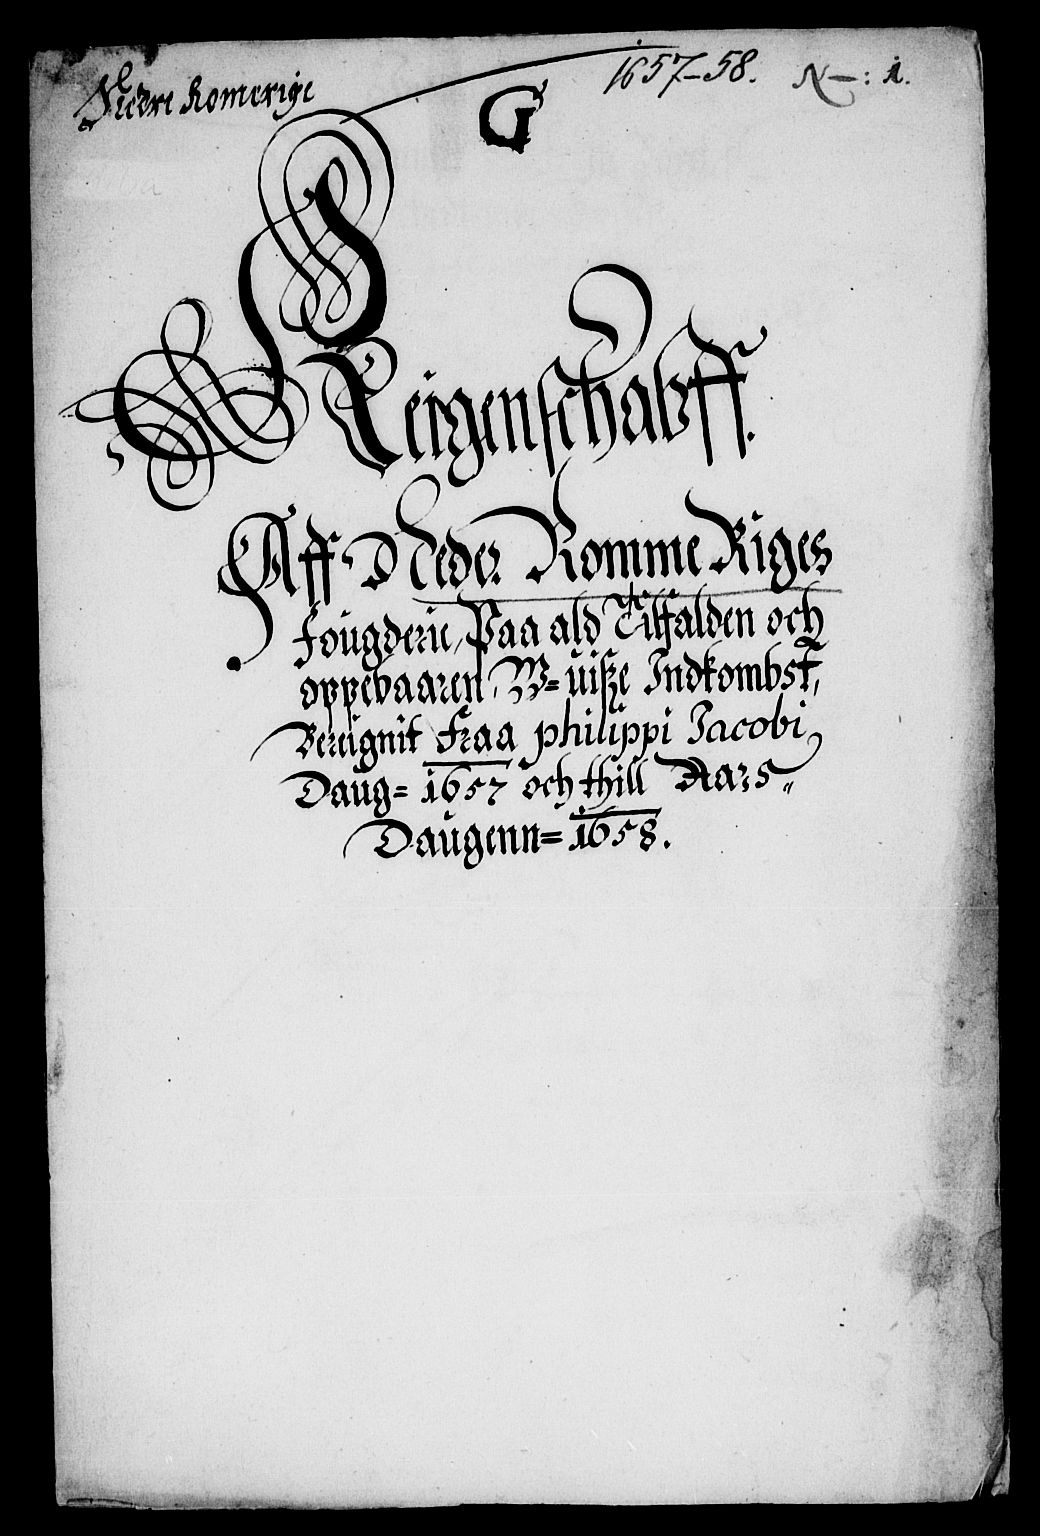 Nedre Romerige
1657-58. N-: 1.
G
Reigenschabff.
Aff Neder Romme Riges
fougderie, Paa ald Tilfalden och
oppebaaren, W=uisze Indkombst,
Bereignit fraa philippi Jacobi
Daug= 1657 och thill Aars
Daugenn= 1658.